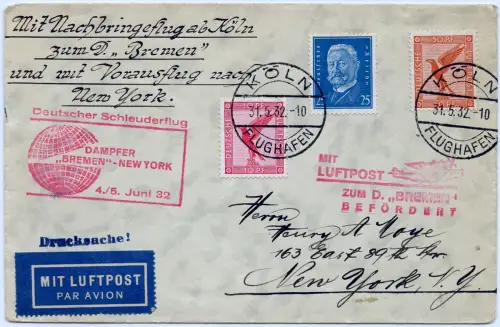 Mit Nachbringeflug ab Köln
zum D. „Bremen"
und mit Vorausflug nach
New York.
Deutscher Schleuderflug
DAMPFER
„BREMEN"-NEW YORK
4./5. Juni 32
KÖLN
31.5.32.-10
FLUGHAFEN
25
25
50 PF.
KÖLN
31.5.32.-10
FLUGHAFEN
10 PF.
MIT
LUFTPOST
ZUM D. „BREMEN"
BEFÖRDERT
Drucksache!
MIT LUFTPOST
PAR AVION
Herrn
Henry A Moye
163 East 89th Str.
New York, N.Y.